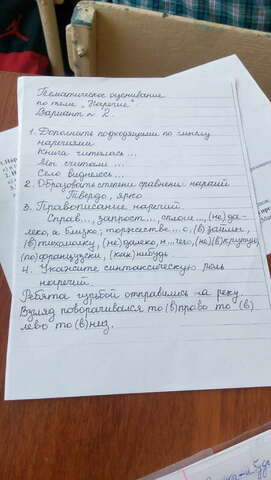 Тематическое оценивание
по теме „Наречие".
Вариант № 2.
1. Дополнить подходящими по смыслу
наречиями
Книга читалась...
Мы считаем ...
Село виднелось...
2. Образовать степени сравнения наречий
Твердо, ярко
3. Правописание наречий
Справ..., запрост..., сплош..., (не)да-
леко, а близко; торжестве...о, (в)займы,
(в)тихомолку, (не)далеко, н...чего, (не)(в)крутую,
(по)французски, (как)нибудь
4. Укажите синтаксическую роль
наречий.
Ребята гурьбой отправились на реку.
Взгляд поворачивался то (в)право то (в)
лево то (в)низ.